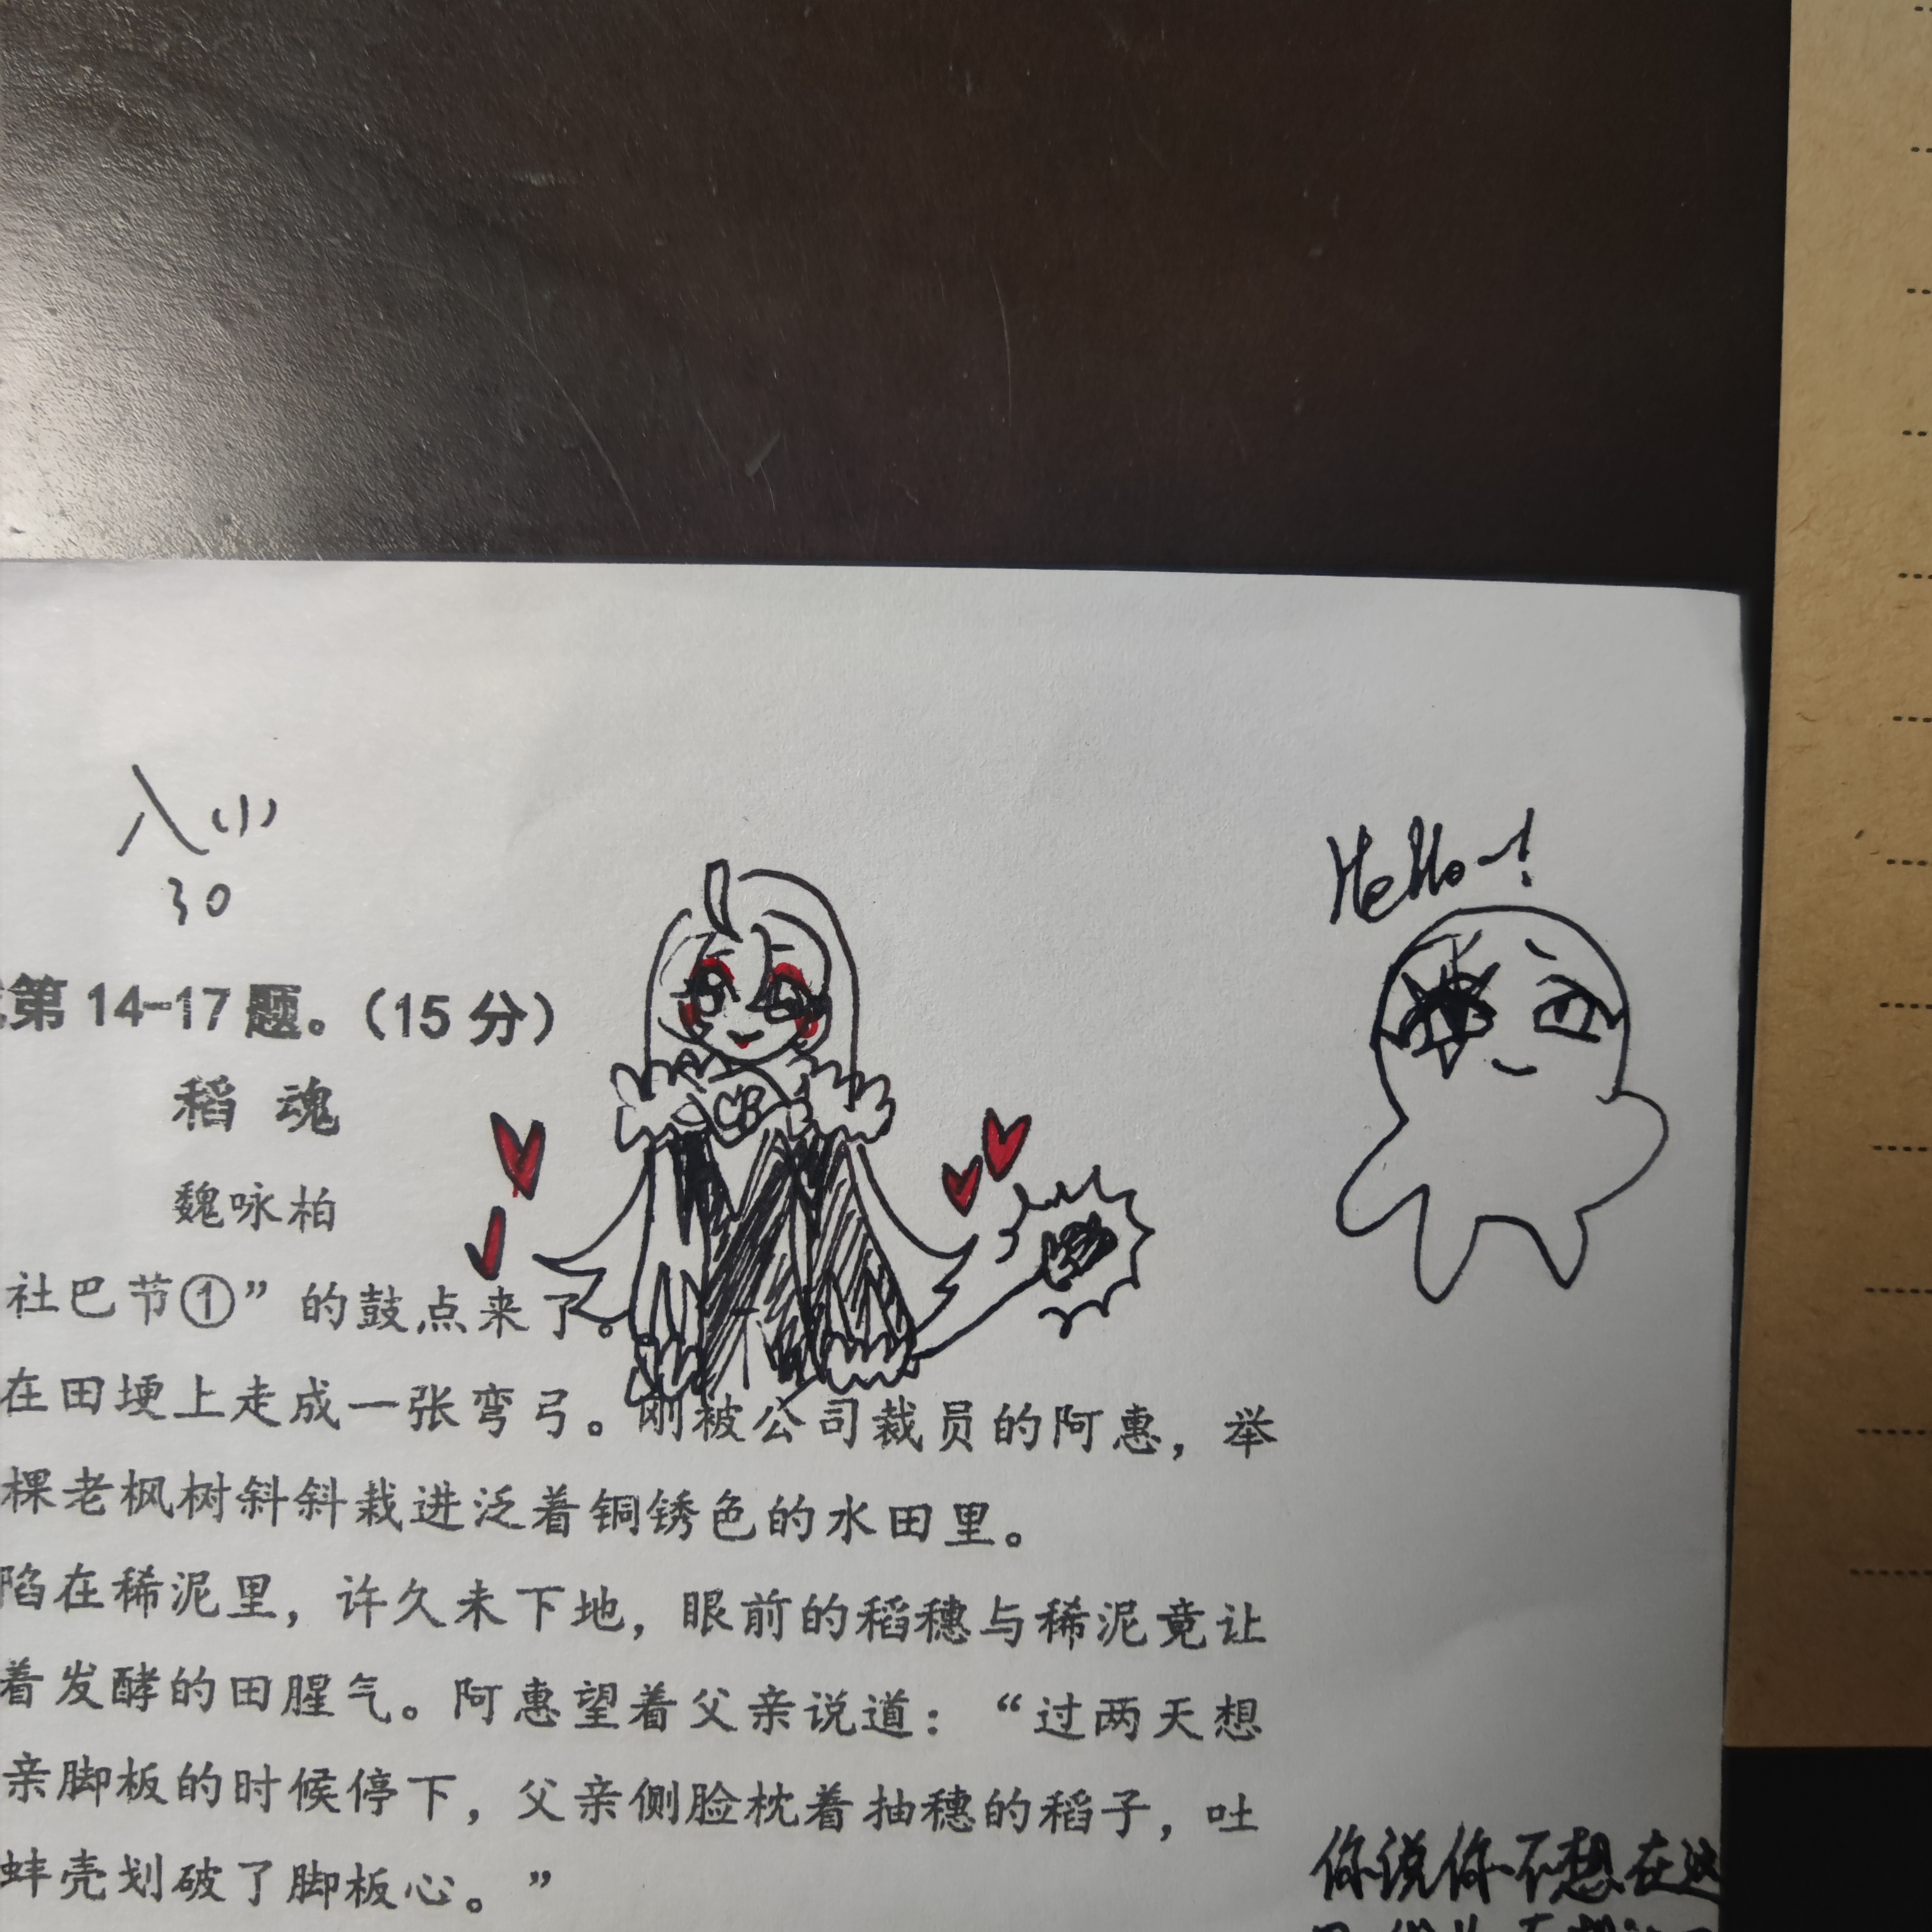 Hello~!
30
第14-17题。（15分）
稻 魂
魏咏柏
社巴节①”的鼓点来了。
在田埂上走成一张弯弓。刚被公司裁员的阿惠，举
棵老枫树斜斜栽进泛着铜锈色的水田里。
陷在稀泥里，许久未下地，眼前的稻穗与稀泥竟让
着发酵的田腥气。阿惠望着父亲说道：“过两天想
亲脚板的时候停下，父亲侧脸枕着抽穗的稻子，吐
蚌壳划破了脚板心。”
你说你不想在这